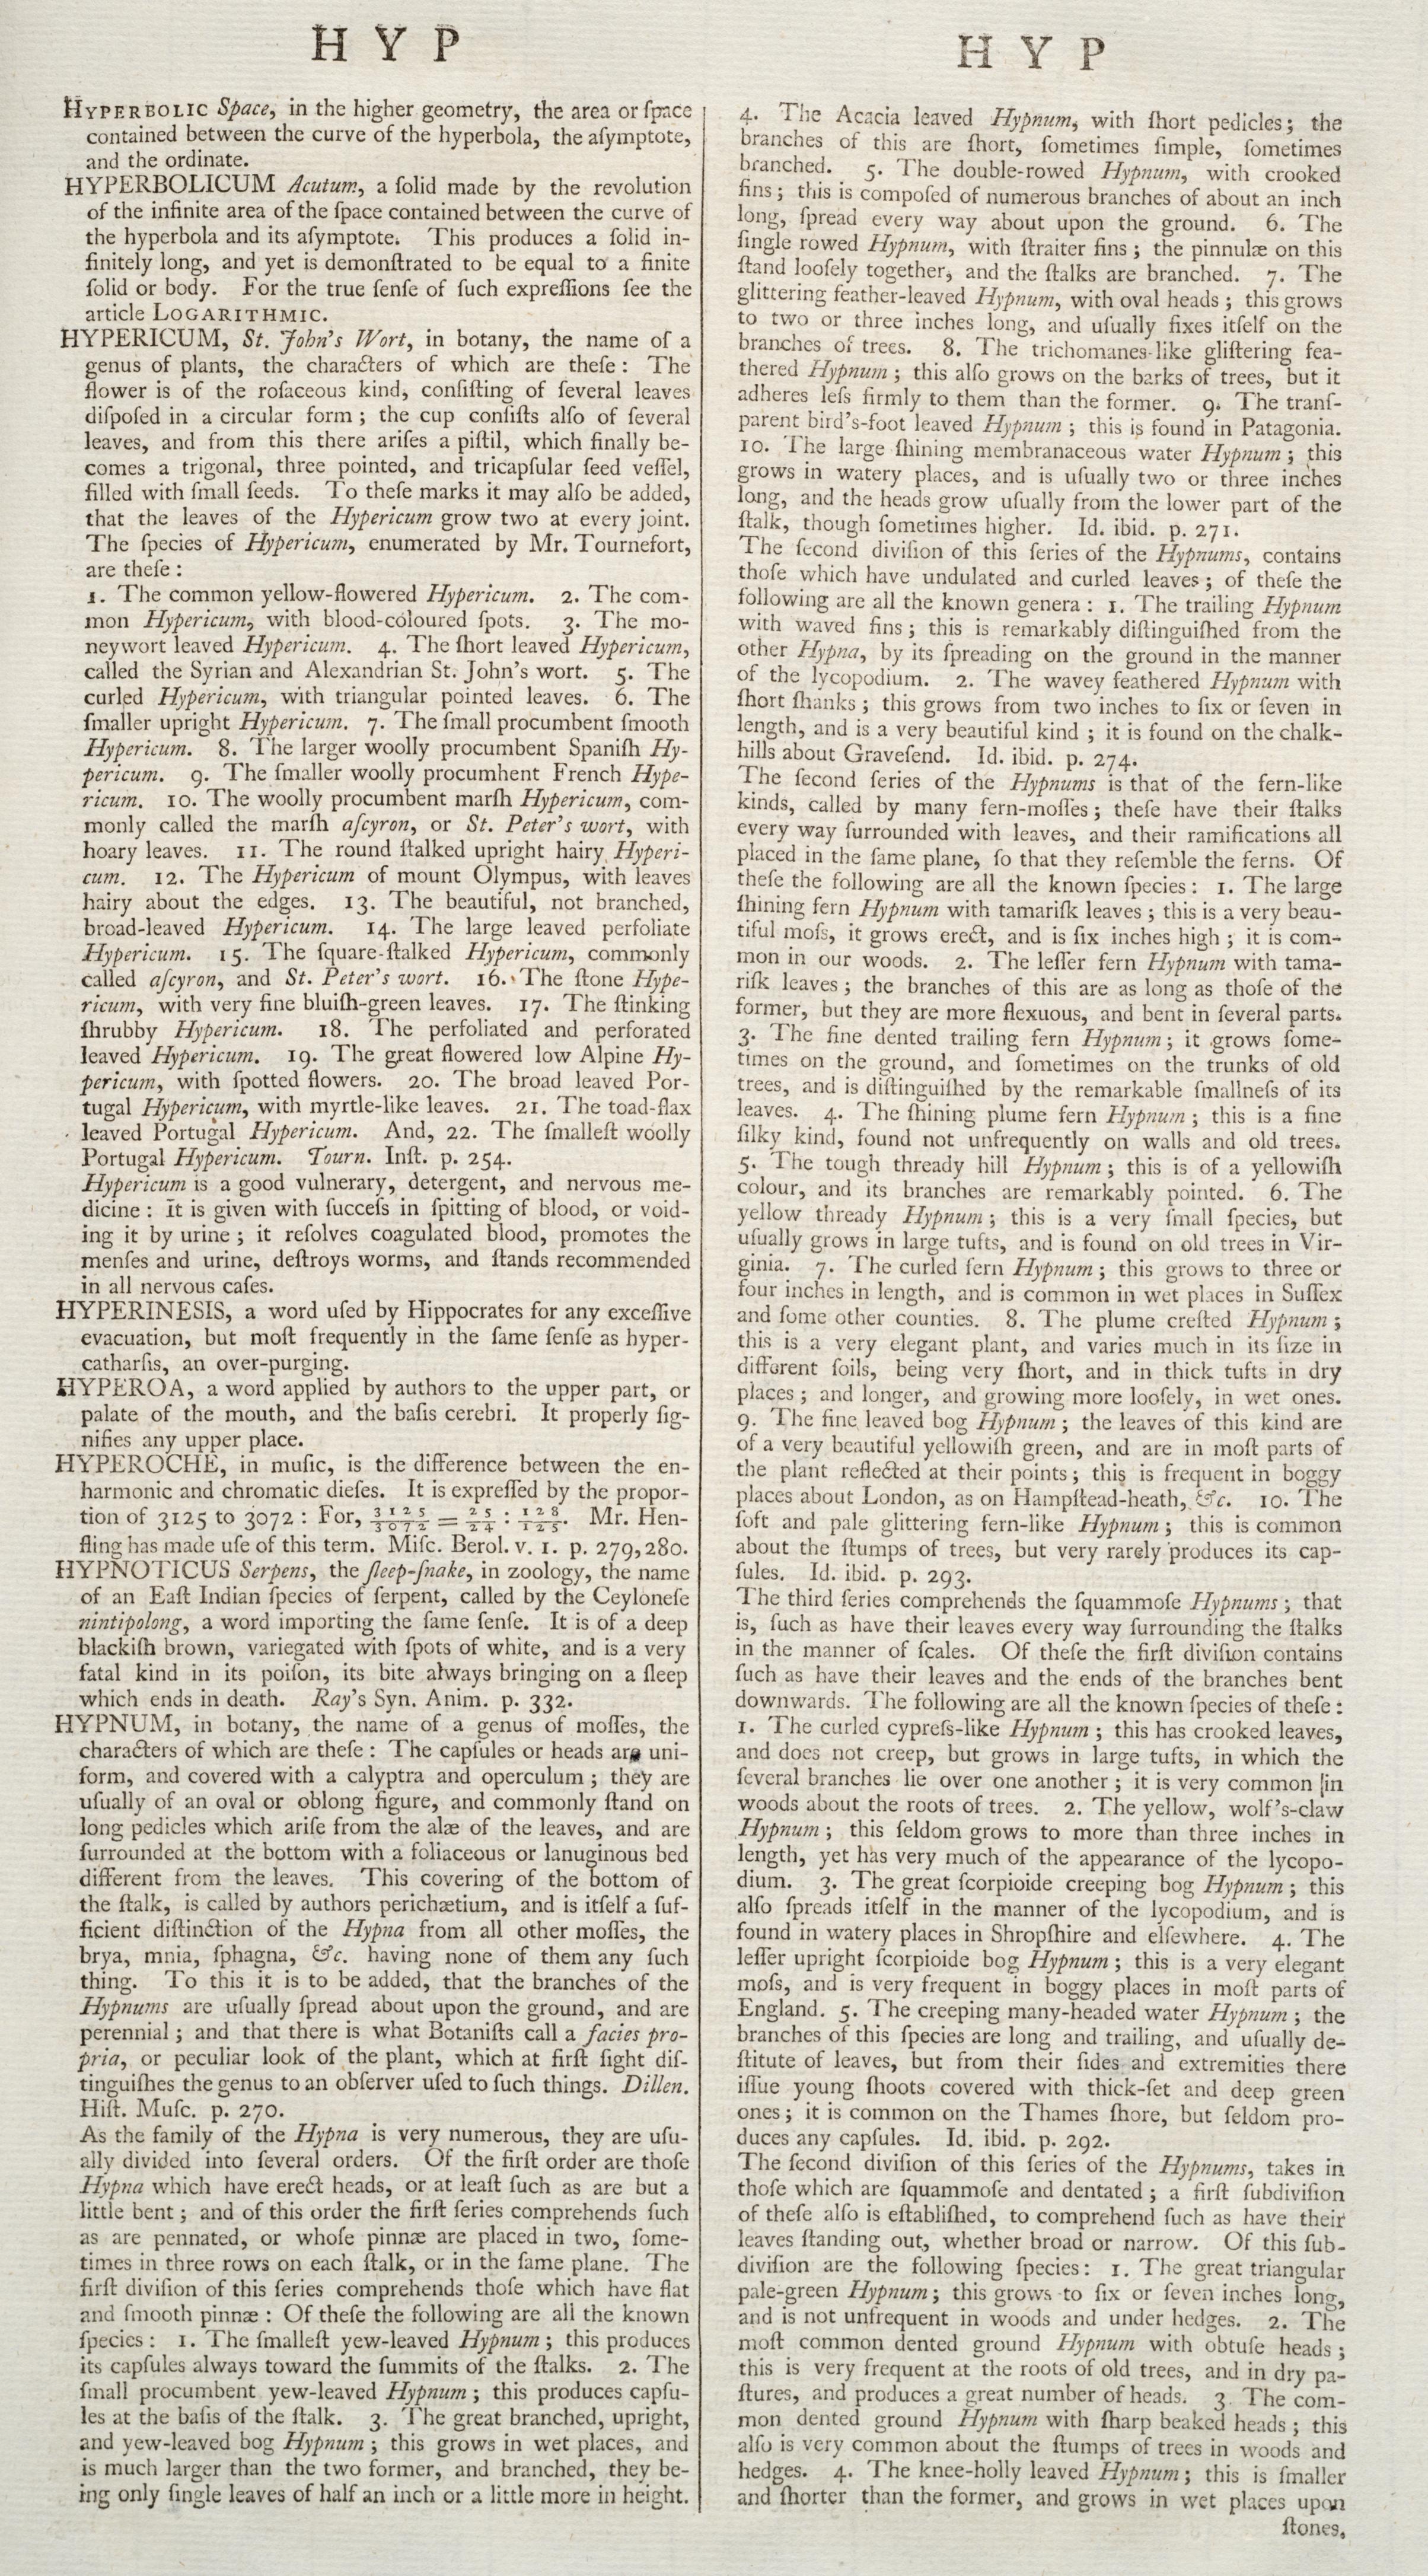 H Y P
HYPERBOLIC Space, in the higher geometry, the area or ſpace
contained between the curve of the hyperbola, the aſymptote,
and the ordinate.
HYPERBOLICUM Acutum, a ſolid made by the revolution
of the infinite area of the ſpace contained between the curve of
the hyperbola and its aſymptote. This produces a ſolid in-
finitely long, and yet is demonſtrated to be equal to a finite
ſolid or body. For the true ſenſe of ſuch expreſſions ſee the
article LOGARITHMIC.
HYPERICUM, St. John's Wort, in botany, the name of a
genus of plants, the characters of which are theſe: The
flower is of the roſaceous kind, conſiſting of ſeveral leaves
diſpoſed in a circular form; the cup conſiſts alſo of ſeveral
leaves, and from this there ariſes a piſtil, which finally be-
comes a trigonal, three pointed, and tricapſular ſeed veſſel,
filled with ſmall ſeeds. To theſe marks it may alſo be added,
that the leaves of the Hypericum grow two at every joint.
The ſpecies of Hypericum, enumerated by Mr. Tournefort,
are theſe:
1. The common yellow-flowered Hypericum. 2. The com-
mon Hypericum, with blood-coloured ſpots. 3. The mo-
neywort leaved Hypericum. 4. The ſhort leaved Hypericum,
called the Syrian and Alexandrian St. John's wort. 5. The
curled Hypericum, with triangular pointed leaves. 6. The
ſmaller upright Hypericum. 7. The ſmall procumbent ſmooth
Hypericum. 8. The larger woolly procumbent Spaniſh Hy-
pericum. 9. The ſmaller woolly procumhent French Hype-
ricum. 10. The woolly procumbent marſh Hypericum, com-
monly called the marſh aſcyron, or St. Peter's wort, with
hoary leaves. 11. The round ſtalked upright hairy Hyperi-
cum. 12. The Hypericum of mount Olympus, with leaves
hairy about the edges. 13. The beautiful, not branched,
broad-leaved Hypericum. 14. The large leaved perfoliate
Hypericum. 15. The ſquare-ſtalked Hypericum, commonly
called aſcyron, and St. Peter's wort. 16. The ſtone Hype-
ricum, with very fine bluiſh-green leaves. 17. The ſtinking
ſhrubby Hypericum. 18. The perfoliated and perforated
leaved Hypericum. 19. The great flowered low Alpine Hy-
pericum, with ſpotted flowers. 20. The broad leaved Por-
tugal Hypericum, with myrtle-like leaves. 21. The toad-flax
leaved Portugal Hypericum. And, 22. The ſmalleſt woolly
Portugal Hypericum. Tourn. Inſt. p. 254.
Hypericum is a good vulnerary, detergent, and nervous me-
dicine: It is given with ſucceſs in ſpitting of blood, or void-
ing it by urine; it reſolves coagulated blood, promotes the
menſes and urine, deſtroys worms, and ſtands recommended
in all nervous caſes.
HYPERINESIS, a word uſed by Hippocrates for any exceſſive
evacuation, but moſt frequently in the ſame ſenſe as hyper-
catharſis, an over-purging.
HYPEROA, a word applied by authors to the upper part, or
palate of the mouth, and the baſis cerebri. It properly ſig-
nifies any upper place.
HYPEROCHE, in muſic, is the difference between the en-
harmonic and chromatic dieſes. It is expreſſed by the propor-
tion of 3125 to 3072: For, 3125/3072 = 25/24 : 128/125. Mr. Hen-
fling has made uſe of this term. Miſc. Berol. v. 1. p. 279, 280.
HYPNOTICUS Serpens, the ſleep-ſnake, in zoology, the name
of an Eaſt Indian ſpecies of ſerpent, called by the Ceyloneſe
nintipolong, a word importing the ſame ſenſe. It is of a deep
blackiſh brown, variegated with ſpots of white, and is a very
fatal kind in its poiſon, its bite always bringing on a ſleep
which ends in death. Ray's Syn. Anim. p. 332.
HYPNUM, in botany, the name of a genus of moſſes, the
characters of which are theſe: The capſules or heads are uni-
form, and covered with a calyptra and operculum; they are
uſually of an oval or oblong figure, and commonly ſtand on
long pedicles which ariſe from the alæ of the leaves, and are
ſurrounded at the bottom with a foliaceous or lanuginous bed
different from the leaves. This covering of the bottom of
the ſtalk, is called by authors perichætium, and is itſelf a ſuf-
ficient diſtinction of the Hypna from all other moſſes, the
brya, mnia, ſphagna, &c. having none of them any ſuch
thing. To this it is to be added, that the branches of the
Hypnums are uſually ſpread about upon the ground, and are
perennial; and that there is what Botaniſts call a facies pro-
pria, or peculiar look of the plant, which at firſt ſight diſ-
tinguiſhes the genus to an obſerver uſed to ſuch things. Dillen.
Hiſt. Muſc. p. 270.
As the family of the Hypna is very numerous, they are uſu-
ally divided into ſeveral orders. Of the firſt order are thoſe
Hypna which have erect heads, or at leaſt ſuch as are but a
little bent; and of this order the firſt ſeries comprehends ſuch
as are pennated, or whoſe pinnæ are placed in two, ſome-
times in three rows on each ſtalk, or in the ſame plane. The
firſt diviſion of this ſeries comprehends thoſe which have flat
and ſmooth pinnæ: Of theſe the following are all the known
ſpecies: 1. The ſmalleſt yew-leaved Hypnum; this produces
its capſules always toward the ſummits of the ſtalks. 2. The
ſmall procumbent yew-leaved Hypnum; this produces capſu-
les at the baſis of the ſtalk. 3. The great branched, upright,
and yew-leaved bog Hypnum; this grows in wet places, and
is much larger than the two former, and branched, they be-
ing only ſingle leaves of half an inch or a little more in height.
H Y P
4. The Acacia leaved Hypnum, with ſhort pedicles; the
branches of this are ſhort, ſometimes ſimple, ſometimes
branched. 5. The double-rowed Hypnum, with crooked
fins; this is compoſed of numerous branches of about an inch
long, ſpread every way about upon the ground. 6. The
ſingle rowed Hypnum, with ſtraiter fins; the pinnulæ on this
ſtand looſely together, and the ſtalks are branched. 7. The
glittering feather-leaved Hypnum, with oval heads; this grows
to two or three inches long, and uſually fixes itſelf on the
branches of trees. 8. The trichomanes-like gliſtering fea-
thered Hypnum; this alſo grows on the barks of trees, but it
adheres leſs firmly to them than the former. 9. The tranſ-
parent bird's-foot leaved Hypnum; this is found in Patagonia.
10. The large ſhining membranaceous water Hypnum; this
grows in watery places, and is uſually two or three inches
long, and the heads grow uſually from the lower part of the
ſtalk, though ſometimes higher. Id. ibid. p. 271.
The ſecond diviſion of this ſeries of the Hypnums, contains
thoſe which have undulated and curled leaves; of theſe the
following are all the known genera: 1. The trailing Hypnum
with waved fins; this is remarkably diſtinguiſhed from the
other Hypna, by its ſpreading on the ground in the manner
of the lycopodium. 2. The wavey feathered Hypnum with
ſhort ſhanks; this grows from two inches to ſix or ſeven in
length, and is a very beautiful kind; it is found on the chalk-
hills about Graveſend. Id. ibid. p. 274.
The ſecond ſeries of the Hypnums is that of the fern-like
kinds, called by many fern-moſſes; theſe have their ſtalks
every way ſurrounded with leaves, and their ramifications all
placed in the ſame plane, ſo that they reſemble the ferns. Of
theſe the following are all the known ſpecies: 1. The large
ſhining fern Hypnum with tamariſk leaves; this is a very beau-
tiful moſs, it grows erect, and is ſix inches high; it is com-
mon in our woods. 2. The leſſer fern Hypnum with tama-
riſk leaves; the branches of this are as long as thoſe of the
former, but they are more flexuous, and bent in ſeveral parts.
3. The fine dented trailing fern Hypnum; it grows ſome-
times on the ground, and ſometimes on the trunks of old
trees, and is diſtinguiſhed by the remarkable ſmallneſs of its
leaves. 4. The ſhining plume fern Hypnum; this is a fine
ſilky kind, found not unfrequently on walls and old trees.
5. The tough thready hill Hypnum; this is of a yellowiſh
colour, and its branches are remarkably pointed. 6. The
yellow thready Hypnum; this is a very ſmall ſpecies, but
uſually grows in large tufts, and is found on old trees in Vir-
ginia. 7. The curled fern Hypnum; this grows to three or
four inches in length, and is common in wet places in Suſſex
and ſome other counties. 8. The plume creſted Hypnum;
this is a very elegant plant, and varies much in its ſize in
different ſoils, being very ſhort, and in thick tufts in dry
places; and longer, and growing more looſely, in wet ones.
9. The fine leaved bog Hypnum; the leaves of this kind are
of a very beautiful yellowiſh green, and are in moſt parts of
the plant reflected at their points; this is frequent in boggy
places about London, as on Hampſtead-heath, &c. 10. The
ſoft and pale glittering fern-like Hypnum; this is common
about the ſtumps of trees, but very rarely produces its cap-
ſules. Id. ibid. p. 293.
The third ſeries comprehends the ſquammoſe Hypnums; that
is, ſuch as have their leaves every way ſurrounding the ſtalks
in the manner of ſcales. Of theſe the firſt diviſion contains
ſuch as have their leaves and the ends of the branches bent
downwards. The following are all the known ſpecies of theſe:
1. The curled cypreſs-like Hypnum; this has crooked leaves,
and does not creep, but grows in large tufts, in which the
ſeveral branches lie over one another; it is very common in
woods about the roots of trees. 2. The yellow, wolf's-claw
Hypnum; this ſeldom grows to more than three inches in
length, yet has very much of the appearance of the lycopo-
dium. 3. The great ſcorpioide creeping bog Hypnum; this
alſo ſpreads itſelf in the manner of the lycopodium, and is
found in watery places in Shropſhire and elſewhere. 4. The
leſſer upright ſcorpioide bog Hypnum; this is a very elegant
moſs, and is very frequent in boggy places in moſt parts of
England. 5. The creeping many-headed water Hypnum; the
branches of this ſpecies are long and trailing, and uſually de-
ſtitute of leaves, but from their ſides and extremities there
iſſue young ſhoots covered with thick-ſet and deep green
ones; it is common on the Thames ſhore, but ſeldom pro-
duces any capſules. Id. ibid. p. 292.
The ſecond diviſion of this ſeries of the Hypnums, takes in
thoſe which are ſquammoſe and dentated; a firſt ſubdiviſion
of theſe alſo is eſtabliſhed, to comprehend ſuch as have their
leaves ſtanding out, whether broad or narrow. Of this ſub-
diviſion are the following ſpecies: 1. The great triangular
pale-green Hypnum; this grows to ſix or ſeven inches long,
and is not unfrequent in woods and under hedges. 2. The
moſt common dented ground Hypnum with obtuſe heads;
this is very frequent at the roots of old trees, and in dry pa-
ſtures, and produces a great number of heads. 3 The com-
mon dented ground Hypnum with ſharp beaked heads; this
alſo is very common about the ſtumps of trees in woods and
hedges. 4. The knee-holly leaved Hypnum; this is ſmaller
and ſhorter than the former, and grows in wet places upon
ſtones,